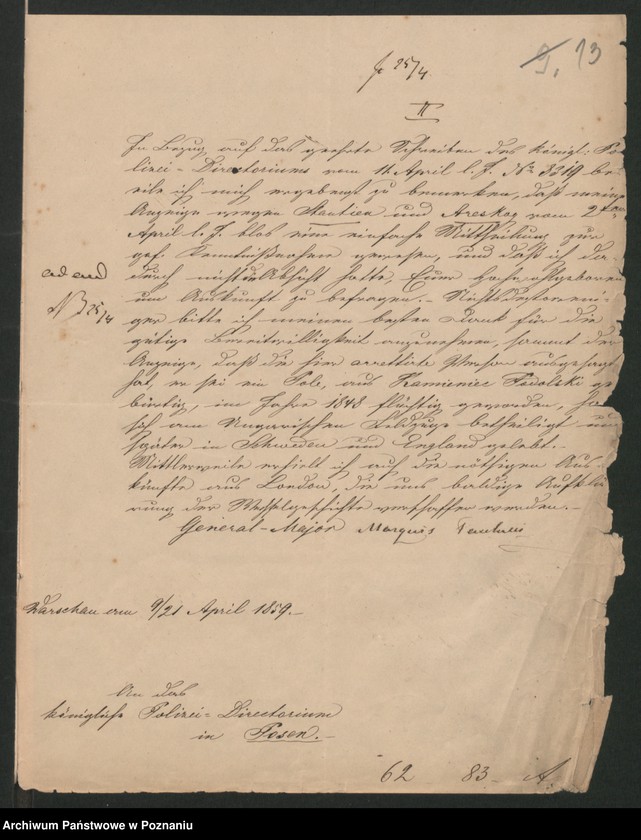 9. 13
pr 25/4
II
In Bezug auf das geehrte Schreiben des königl. Po-
lizei-Directoriums vom 11 April l. J. No 3219 be-
eile ich mich ergebenst zu bemerken, daß meine
Anzeige wegen und vom 2ten
April l. J. blos eine einfache Mittheilung zur
gef. Kenntnißnahme gewesen, und daß ich da-
durch nicht die Absicht hatte, Euer Hochwohlgeboren
um Auskunft zu befragen. – Nichtsdestoweni-
ger bitte ich meinen besten Dank für die
gütige Bereitwilligkeit anzunehmen, sammt der
Anzeige, daß die hier arretirte Person ausgesagt
hat, er sei ein Pole, aus Kamieniec Podolski ge-
bürtig, im Jahre 1848 flüchtig geworden, ha
sich am Ungarischen Feldzuge betheiligt und
später in Schweden und England gelebt. –
Mittlerweile erhielt ich auf die nöthigen Aus-
künfte aus London, die uns baldige Aufklä-
rung der geschichte verschaffen werden. –
General-Major Marquis Paulucci
ad acta
25/4
Warschau am 9/21 April 1859. –
An das
königliche Polizei-Directorium
in Posen. –
62 83 A.
Archiwum Państwowe w Poznaniu